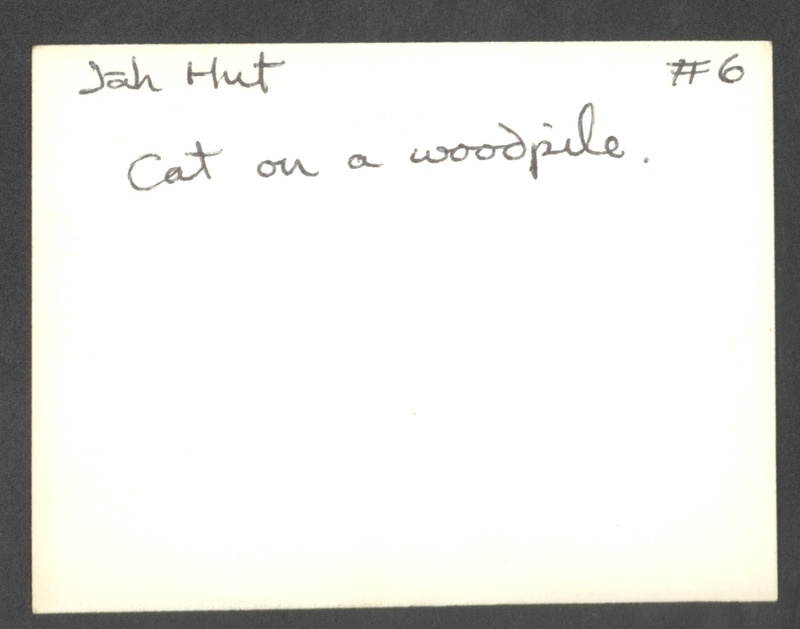 Jah Hut #6
Cat on a woodpile.